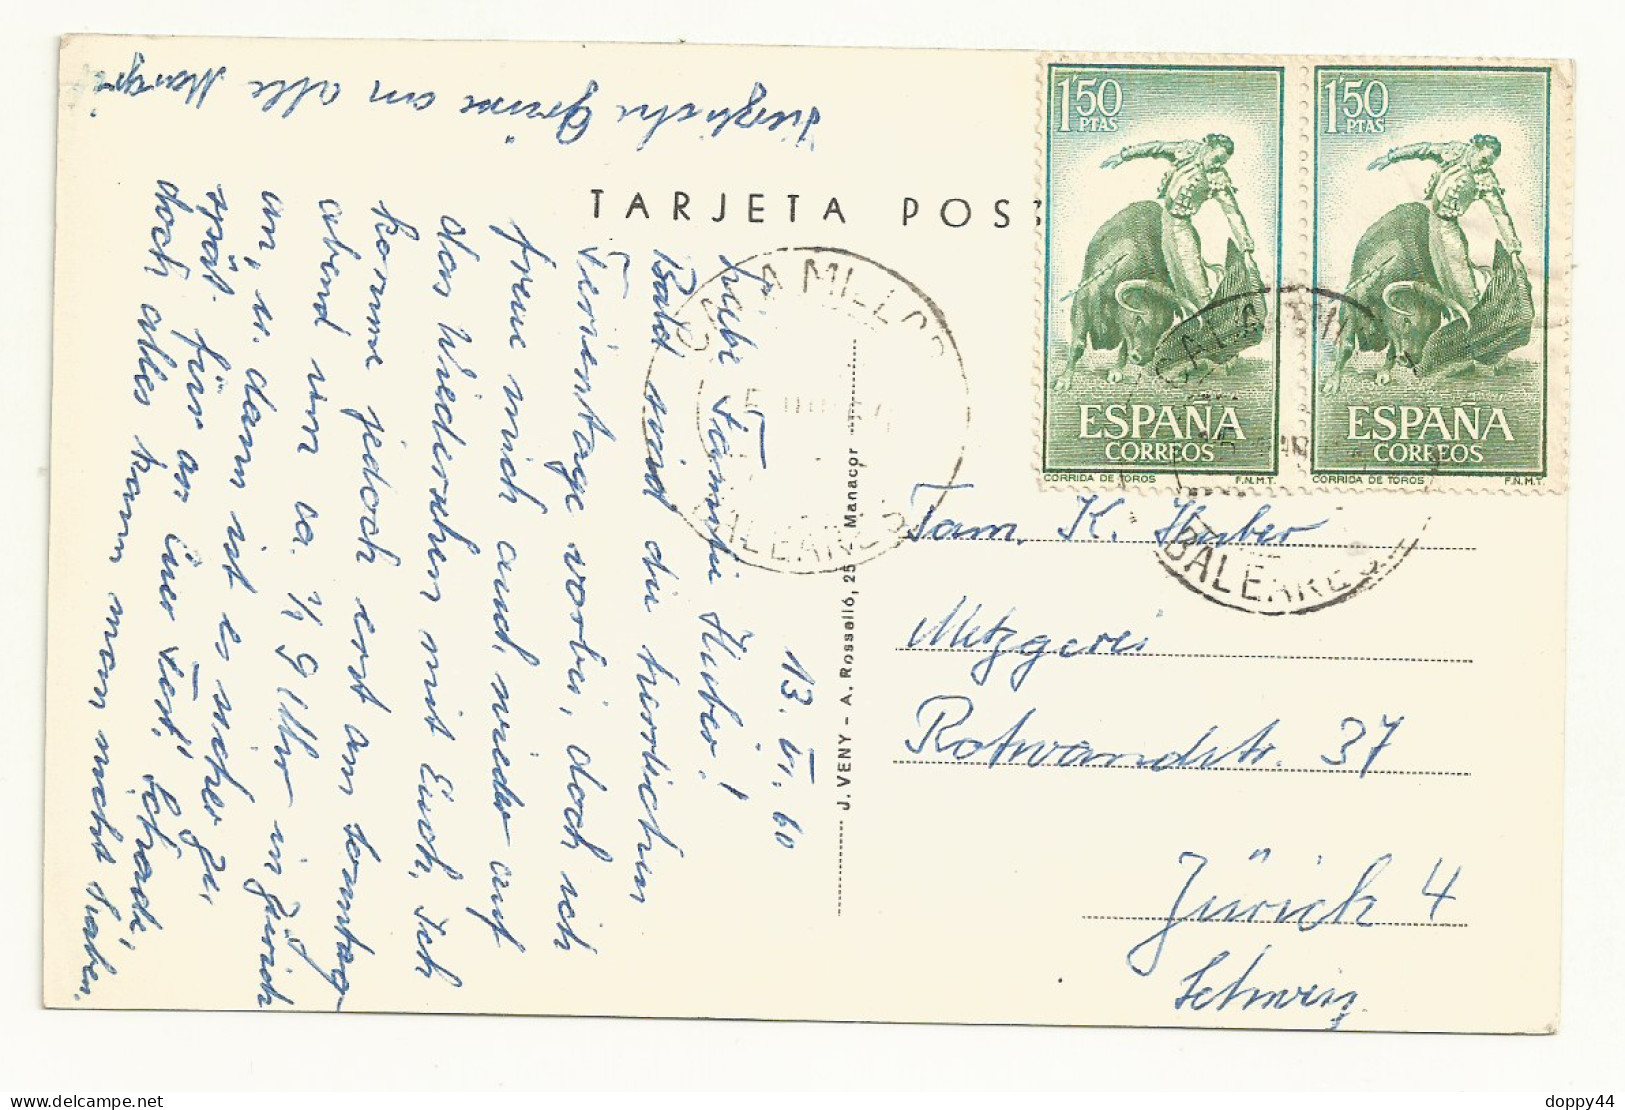 TARJETA POS
13. VI. 60
Liebe Familie Huber!
Bald sind die herrlichen
Ferientage vorbei, doch ich
freue mich auch wieder auf
das Wiedersehen mit Euch. Ich
komme jedoch erst am Sonntag
abend um ca. ½ 9 Uhr in Zürich
an, u. dann ist es sicher zu
spät für an Euer Fest. Schade,
doch alles kann man nicht haben.
Herzliche Grüsse an alle
J. VENY - A. Rosselló, 25 Manacor
1'50
PTAS
ESPAÑA
CORREOS
CORRIDA DE TOROS F.N.M.T.
1'50
PTAS
ESPAÑA
CORREOS
CORRIDA DE TOROS F.N.M.T.
CALA MILLOR
BALEARES
CALA MILLOR
BALEARES
Fam. K. Huber
Metzgerei
Rotwandstr. 37
Zürich 4
Schweiz
doppy44